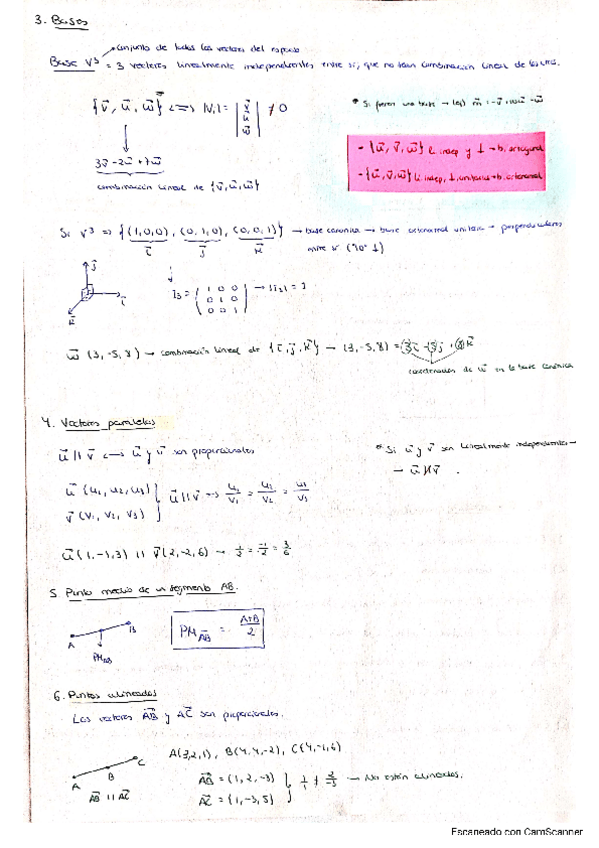 3. Bases
conjunto de todos los vectores del espacio
Base V³ = 3 vectores linealmente independientes entre sí, que no sean combinación lineal de
{v⃗, u⃗, w⃗} <=> |V, | = | v⃗ u⃗ w⃗ | ≠ 0
* Si fueran una base →
3v⃗ - 2u⃗ + 7w⃗
combinación lineal de {v⃗, u⃗, w⃗}
- {u⃗, v⃗, w⃗} l. indep y ⊥ → b. ortogonal
- {u⃗, v⃗, w⃗} l. indep, ⊥, unitarios → b. ortonormal
Si V³ => {(1,0,0), (0,1,0), (0,0,1)} → base canónica → base ortonormal unitaria → perpendiculares
i⃗ j⃗ k⃗ entre sí (90° ⊥)
j⃗
i⃗
k⃗
I₃ = ( 1 0 0
0 1 0
0 0 1 ) → |I₃| = 1
w⃗ (3, -5, 8) → combinación lineal de {i⃗, j⃗, k⃗} → (3, -5, 8) = 3i⃗ - 5j⃗ + 8k⃗
coordenadas de w⃗ en la base canónica
4. Vectores paralelos
u⃗ || v⃗ <-> u⃗ y v⃗ son proporcionales
* Si u⃗ y v⃗ son linealmente independientes →
u⃗ (u₁, u₂, u₃)
v⃗ (v₁, v₂, v₃)
u⃗ || v⃗ → u₁/v₁ = u₂/v₂ = u₃/v₃
u⃗ (1, -1, 3) || v⃗ (2, -2, 6) → 1/2 = -1/-2 = 3/6
5. Punto medio de un segmento AB.
A
B
PM AB
PM AB = A+B/2
6. Puntos alineados
Los vectores AB⃗ y AC⃗ son proporcionales.
A
B
C
AB⃗ || AC⃗
A(3,2,1), B(4,4,-2), C(4,-1,6)
AB⃗ = (1, 2, -3)
AC⃗ = (1, -3, 5)
1/1 ≠ 2/-3 → No están alineados.
Escaneado con CamScanner